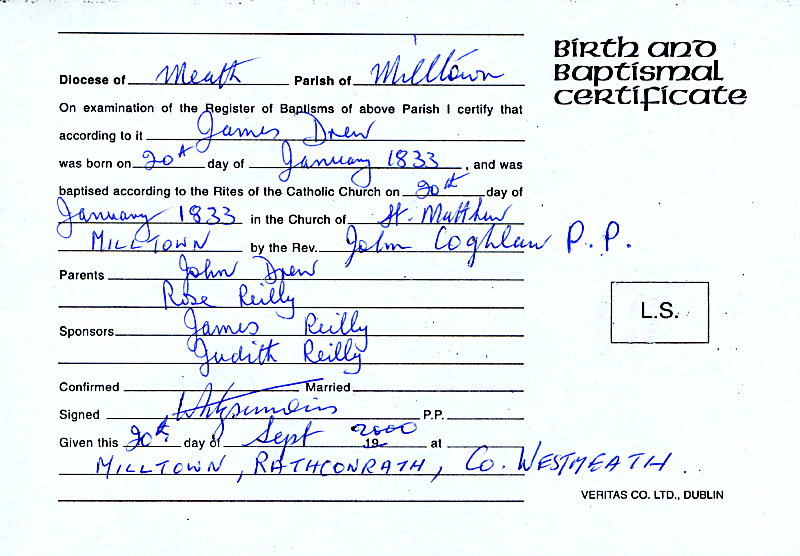 Birth and
Baptismal
certificate
Diocese of Meath Parish of Milltown
On examination of the Register of Baptisms of above Parish I certify that
according to it James Drew
was born on 20th day of January 1833, and was
baptised according to the Rites of the Catholic Church on 20th day of
January 1833 in the Church of St. Matthew
MILLTOWN by the Rev. John Coghlan P.P.
Parents John Drew
Rose Reilly
Sponsors James Reilly
Judith Reilly
L.S.
Confirmed Married
Signed P.P.
Given this 20th day of Sept 19 2000 at
MILLTOWN, RATHCONRATH, Co. WESTMEATH.
VERITAS CO. LTD., DUBLIN